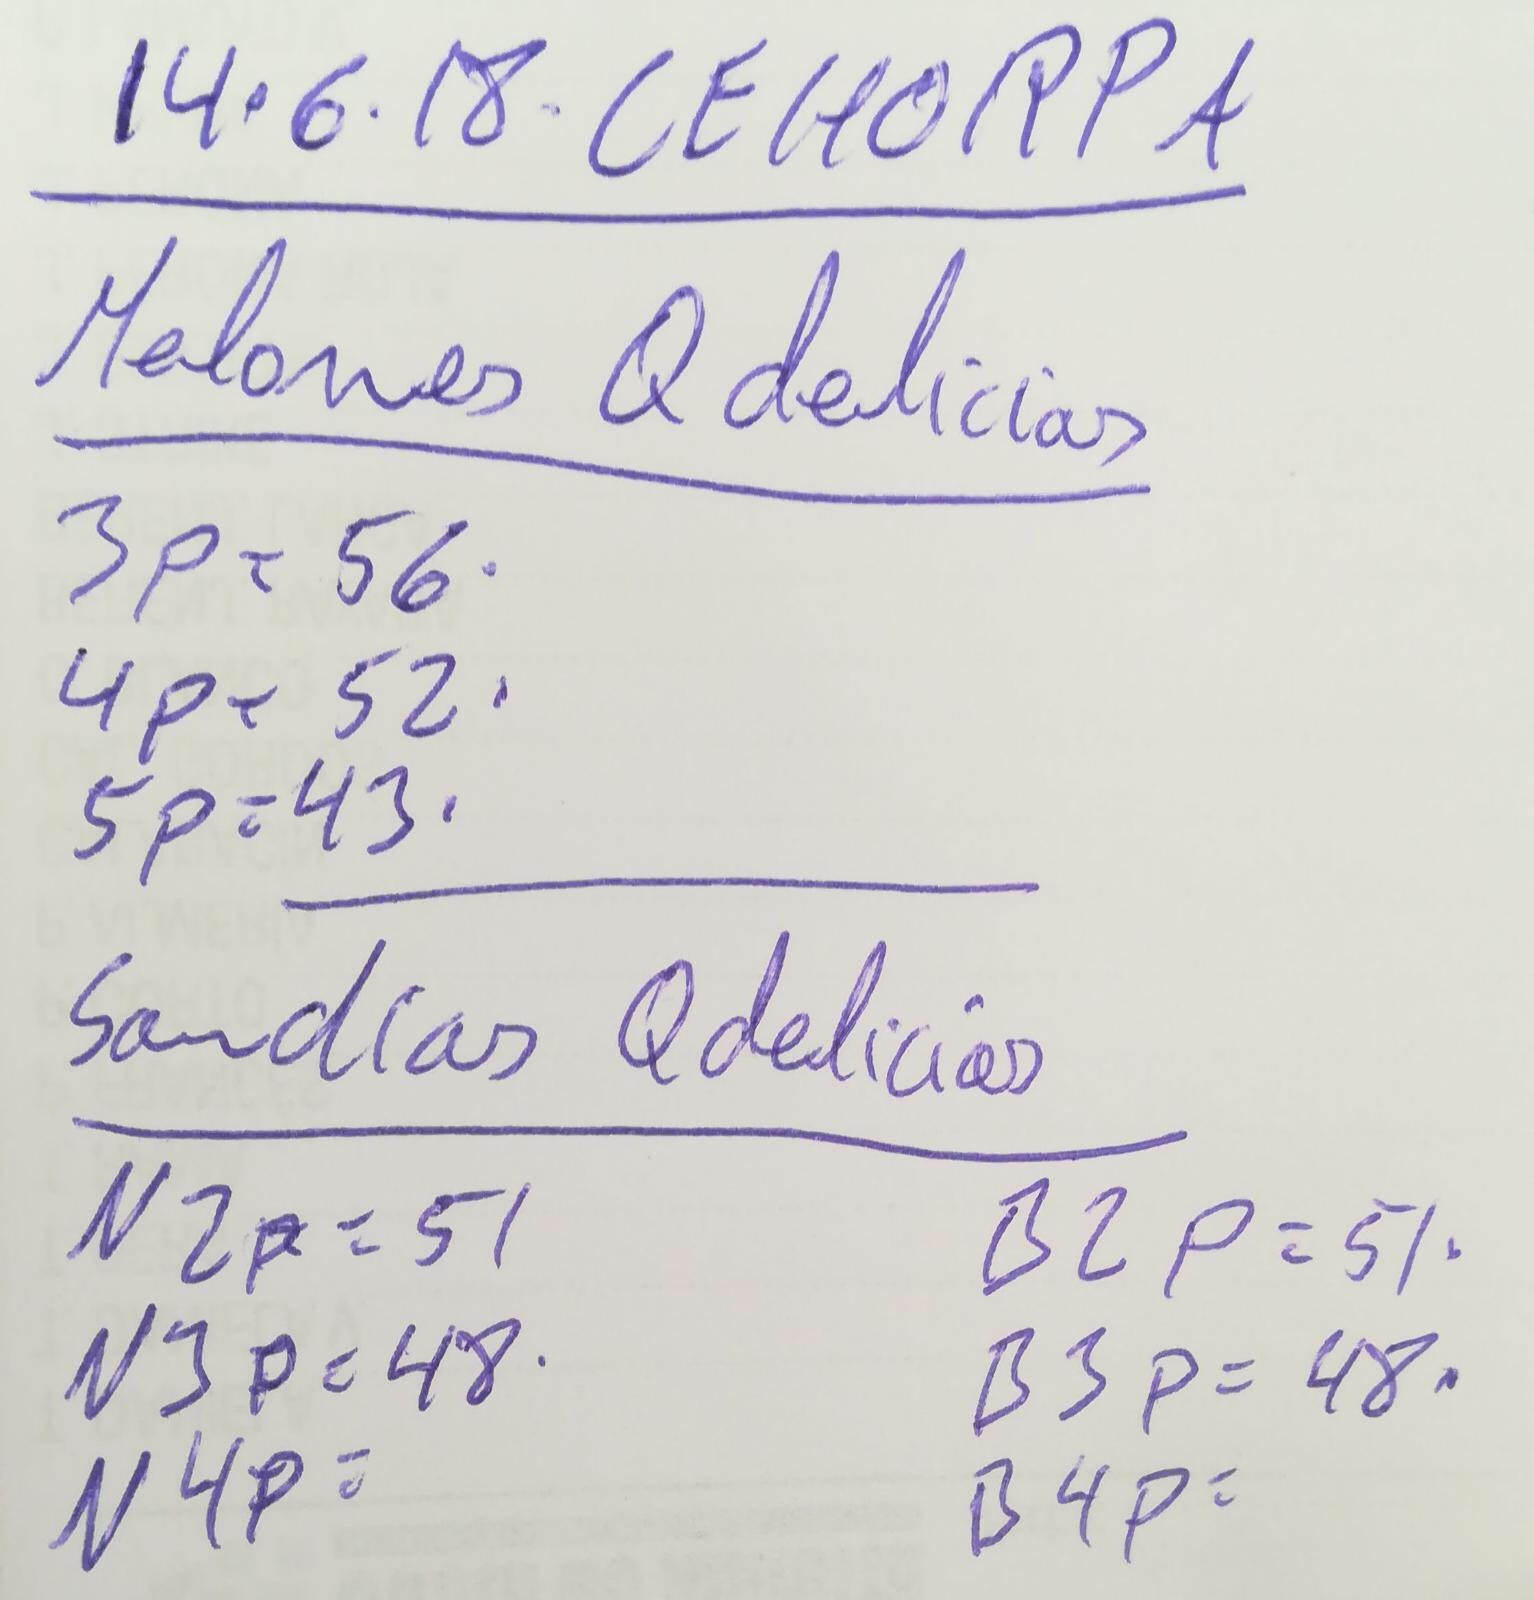 14.6.18. CEHORPA
Melones Qdelicias
3p= 56.
4p= 52.
5p=43.
Sandías Qdelicias
N2p=51 B2p=51.
N3p=48. B3p=48.
N4p= B4p=